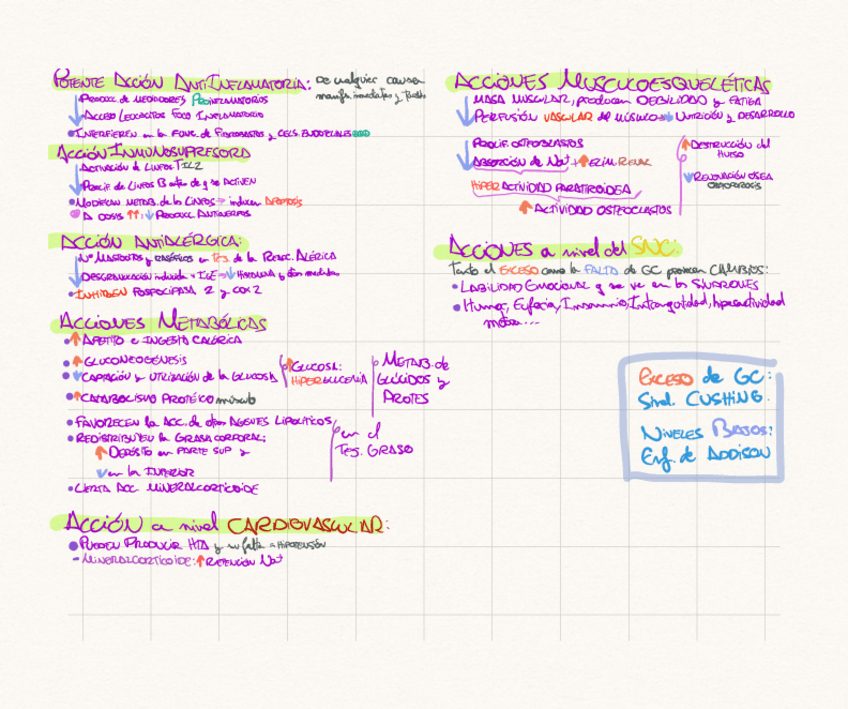 POTENTE ACCIÓN ANTIINFLAMATORIA: De cualquier causa
manifs. inmediatas y
↓ PRODUCC. de MEDIADORES PROINFLAMATORIOS
ACCESO LEUCOCITOS FOCO INFLAMATORIO
• INTERFIEREN en la FUNC. de FIBROBLASTOS y CELS. ENDOTELIALES
ACCIÓN INMUNOSUPRESORA
↓ ACTIVACIÓN de LINFOS T IL2
PROLIF de LINFOS B antes de q se ACTIVEN
• MODIFICAN METAB. de los LINFOS → inducen APOPTOSIS
• A DOSIS ↑↑: ↓ PRODUCC. ANTICUERPOS
ACCIÓN ANTIALÉRGICA:
↓ Nº MASTOCITOS y BASÓFILOS en TEJ. de la REACC. ALÉRICA
DESGRANULACIÓN inducida x IGE → ↓ HISTAMINA y otros mediadores
• INHIBEN FOSFOLIPASA 2 y COX 2
ACCIONES METABÓLICAS
• ↑ APETITO e INGESTA CALÓRICA
• ↑ GLUCONEOGÉNESIS
• ↓ CAPTACIÓN y UTILIZACIÓN de la GLUCOSA
↑ GLUCOSA:
HIPERGLUCEMIA
METAB. de
GLÚCIDOS y
PROTES
• ↑ CATABOLISMO PROTÉICO músculo
• FAVORECEN la ACC. de otros AGENTES LIPOLÍTICOS
• REDISTRIBUYEN la GRASA CORPORAL:
↑ DEPÓSITO en PARTE SUP y
↓ en la INFERIOR
en el
TEJ. GRASO
• CIERTA ACC. MINERALCORTICOIDE
ACCIÓN a nivel CARDIOVASCULAR:
• PUEDEN PRODUCIR HTA y su falta → HIPOTENSIÓN
- MINERALCORTICOIDE: ↑ RETENCIÓN Na+
ACCIONES MUSCULOESQUELÉTICAS
↓ MASA MUSCULAR, producen DEBILIDAD y FATIGA
PERFUSIÓN VASCULAR del MÚSCULO → ↓ NUTRICIÓN y DESARROLLO
↓ PROLIF OSTEOBLASTOS
ABSORCIÓN de Na+ + ↑ ELIM. RENAL
HIPERACTIVIDAD PARATIROIDEA
↑ ACTIVIDAD OSTEOCLASTOS
↑ DESTRUCCIÓN del
HUESO
↓ RENOVACIÓN OSEA
OSTEOPOROSIS
ACCIONES a nivel del SNC:
Tanto el EXCESO como la FALTA de GC provocan CAMBIOS:
• LABILIDAD EMOCIONAL y se ve en los SÍNDROMES
• Humor, Euforia, Insomnio, Intranquilidad, hiperactividad
motora...
EXCESO de GC:
Sínd. CUSHING.
NIVELES BAJOS:
Enf. de ADDISON